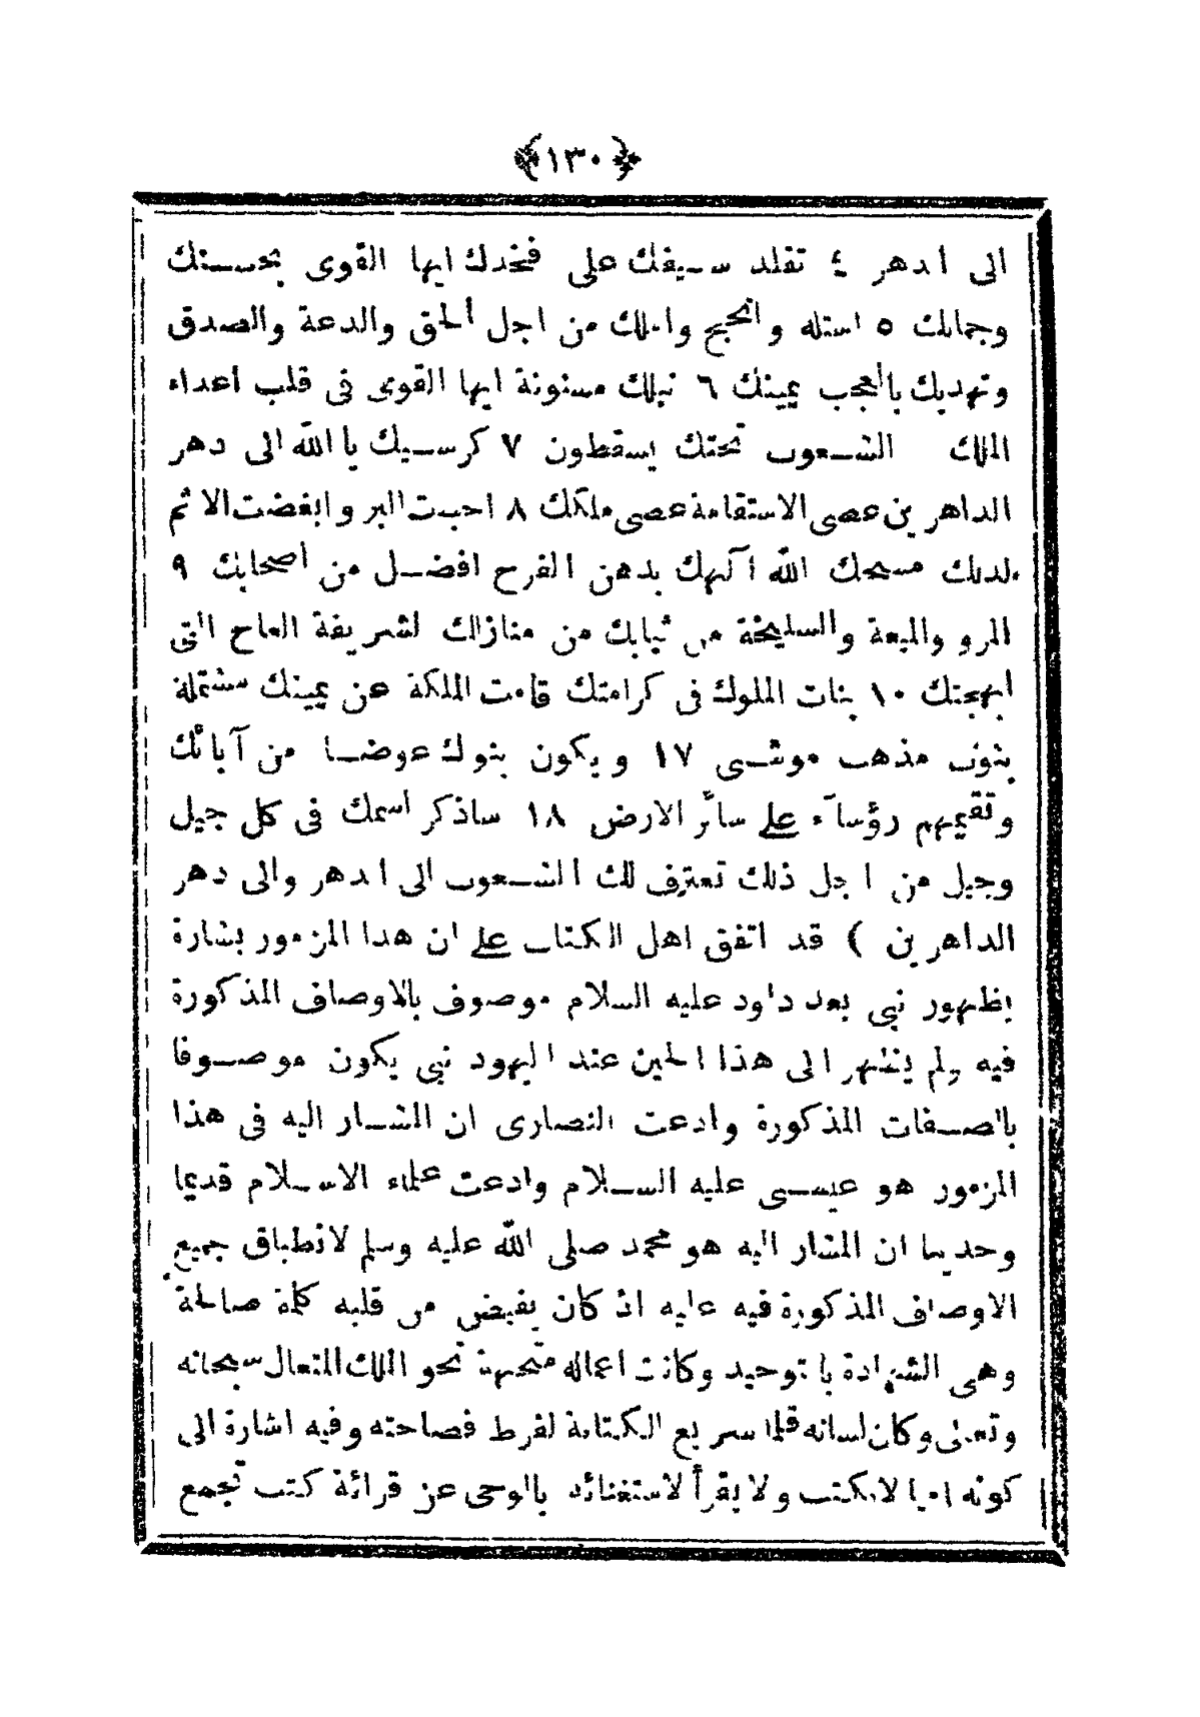 ﴿١٣٠﴾
الى الدهر ٤ تقلد سيفك على فخدك ايها القوى بحسنك
وجمالك ٥ استله وانجح واملك من اجل الحق والدعة والصدق
وتهديك بالعجب يمينك ٦ نبلك مسنونة ايها القوى فى قلب اعداء
الملك الشعوب تحتك يسقطون ٧ كرسيك يا الله الى دهر
الداهرين عصى الاستقامة عصى ملكك ٨ احببت البر وابغضت الاثم
لذلك مسحك الله آلهك بدهن الفرح افضل من اصحابك ٩
المر والميعة والسليخة من ثيابك من منازلك الشريفة العاج التى
ابهجتك ١٠ بنات الملوك فى كرامتك قامت الملكة عن يمينك مشتملة
بثوب مذهب موشى ١٧ ويكون بنوك عوضا من آبائك
وتقيمهم رؤسآء على سائر الارض ١٨ ساذكر اسمك فى كل جيل
وجيل من اجل ذلك تعترف لك الشعوب الى الدهر والى دهر
الداهرين ) قد اتفق اهل الكتاب على ان هذا المزمور بشارة
بظهور نبى بعد داود عليه السلام موصوف بالاوصاف المذكورة
فيه ولم يظهر الى هذا الحين عند اليهود نبى يكون موصوفا
بالصفات المذكورة وادعت النصارى ان المشار اليه فى هذا
المزمور هو عيسى عليه السلام وادعت علماء الاسلام قديما
وحديثا ان المشار اليه هو محمد صلى الله عليه وسلم لانطباق جميع
الاوصاف المذكورة فيه عليه اذ كان يفيض من قلبه كلمة صالحة
وهى الشهادة بالتوحيد وكانت اعماله متجهة نحو الملك المتعال سبحانه
وتعالى وكان لسانه قلما سريع الكتابة لفرط فصاحته وفيه اشارة الى
كونه اميا لايكتب ولا يقرأ لاستغنائه بالوحى عن قرائة كتب تجمع